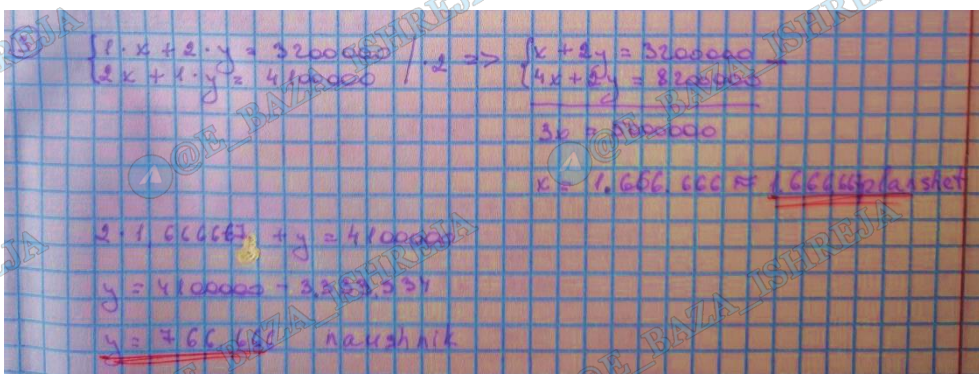 1
{1·x + 2·y = 3200000
{2x + 1·y = 4100000 /·2 => {x + 2y = 3200000 -
{4x + 2y = 8200000
3x = 5000000
x = 1.666.666 ≈ 1.666667 planshet
2·1.666667 + y = 4100000
y = 4100000 - 3.333.334
y = 766.666 naushnik
@E_BAZA_ISHREJA
@E_BAZA_ISHREJA